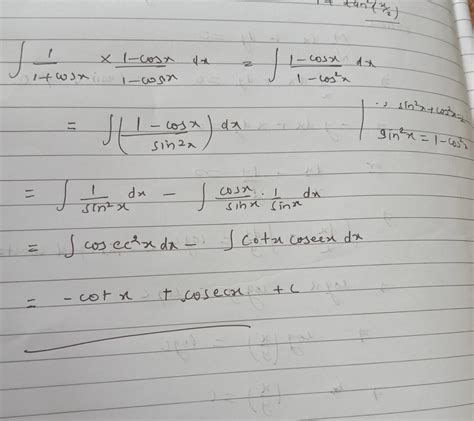 1+ tan²(x/2)
∫ 1/(1+cosx) × (1-cosx)/(1-cosx) dx = ∫ (1-cosx)/(1-cos²x) dx
= ∫ ((1-cosx)/(sin2x)) dx
∵ sin²x+cos²x=
sin²x = 1-cos²
= ∫ 1/sin²x dx - ∫ cosx/sinx · 1/sinx dx
= ∫ cosec²x dx - ∫ cotx cosecx dx
= -cotx + cosecx + c